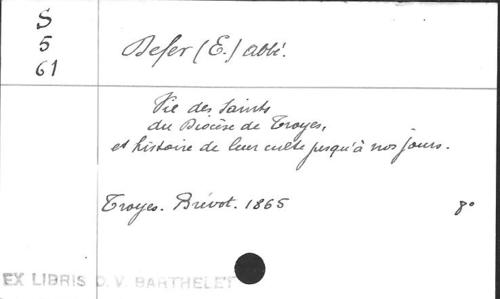 S
5
61
Defer (E.) abbé.
Vie des Saints
du Diocèse de Troyes,
et histoire de leur culte jusqu'à nos jours.
Troyes. Brévot. 1865 8°
EX LIBRIS D. V. BARTHELET